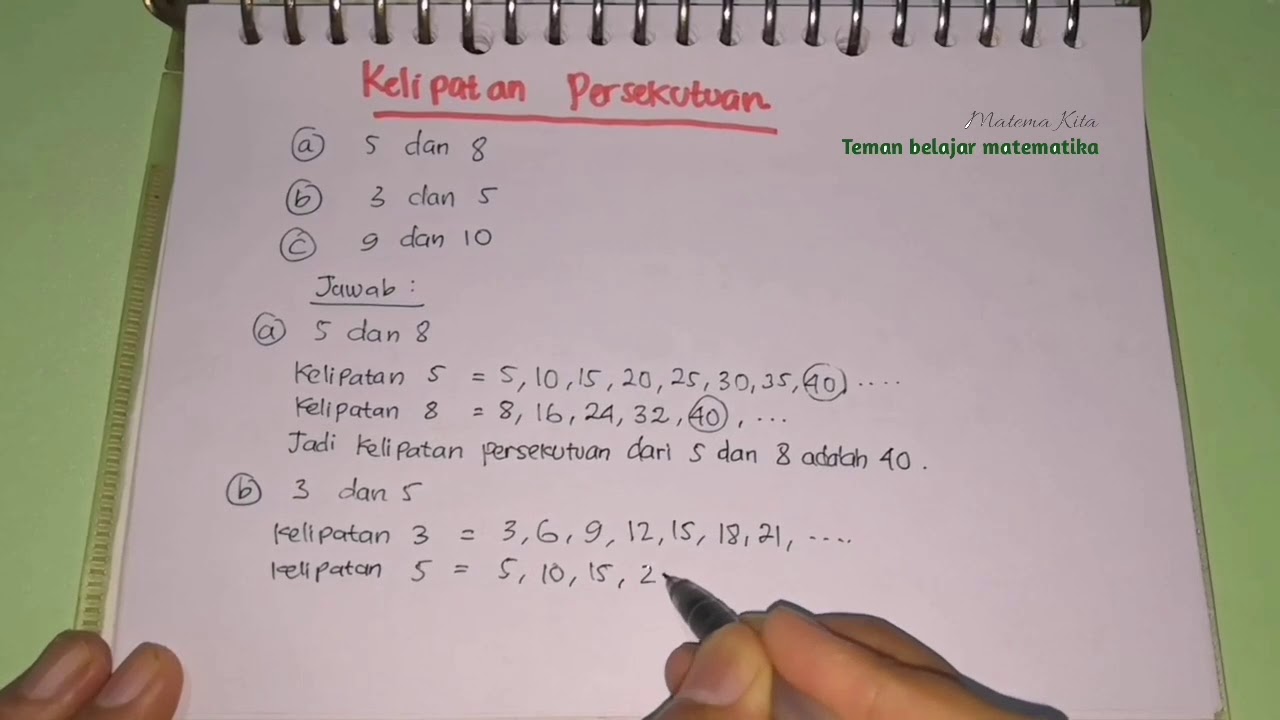 Kelipatan Persekutuan
Matema Kita
Teman belajar matematika
a 5 dan 8
b 3 dan 5
c 9 dan 10
Jawab :
a 5 dan 8
Kelipatan 5 = 5, 10, 15, 20, 25, 30, 35, 40, ....
Kelipatan 8 = 8, 16, 24, 32, 40, ...
Jadi Kelipatan persekutuan dari 5 dan 8 adalah 40.
b 3 dan 5
Kelipatan 3 = 3, 6, 9, 12, 15, 18, 21, ....
Kelipatan 5 = 5, 10, 15, 2